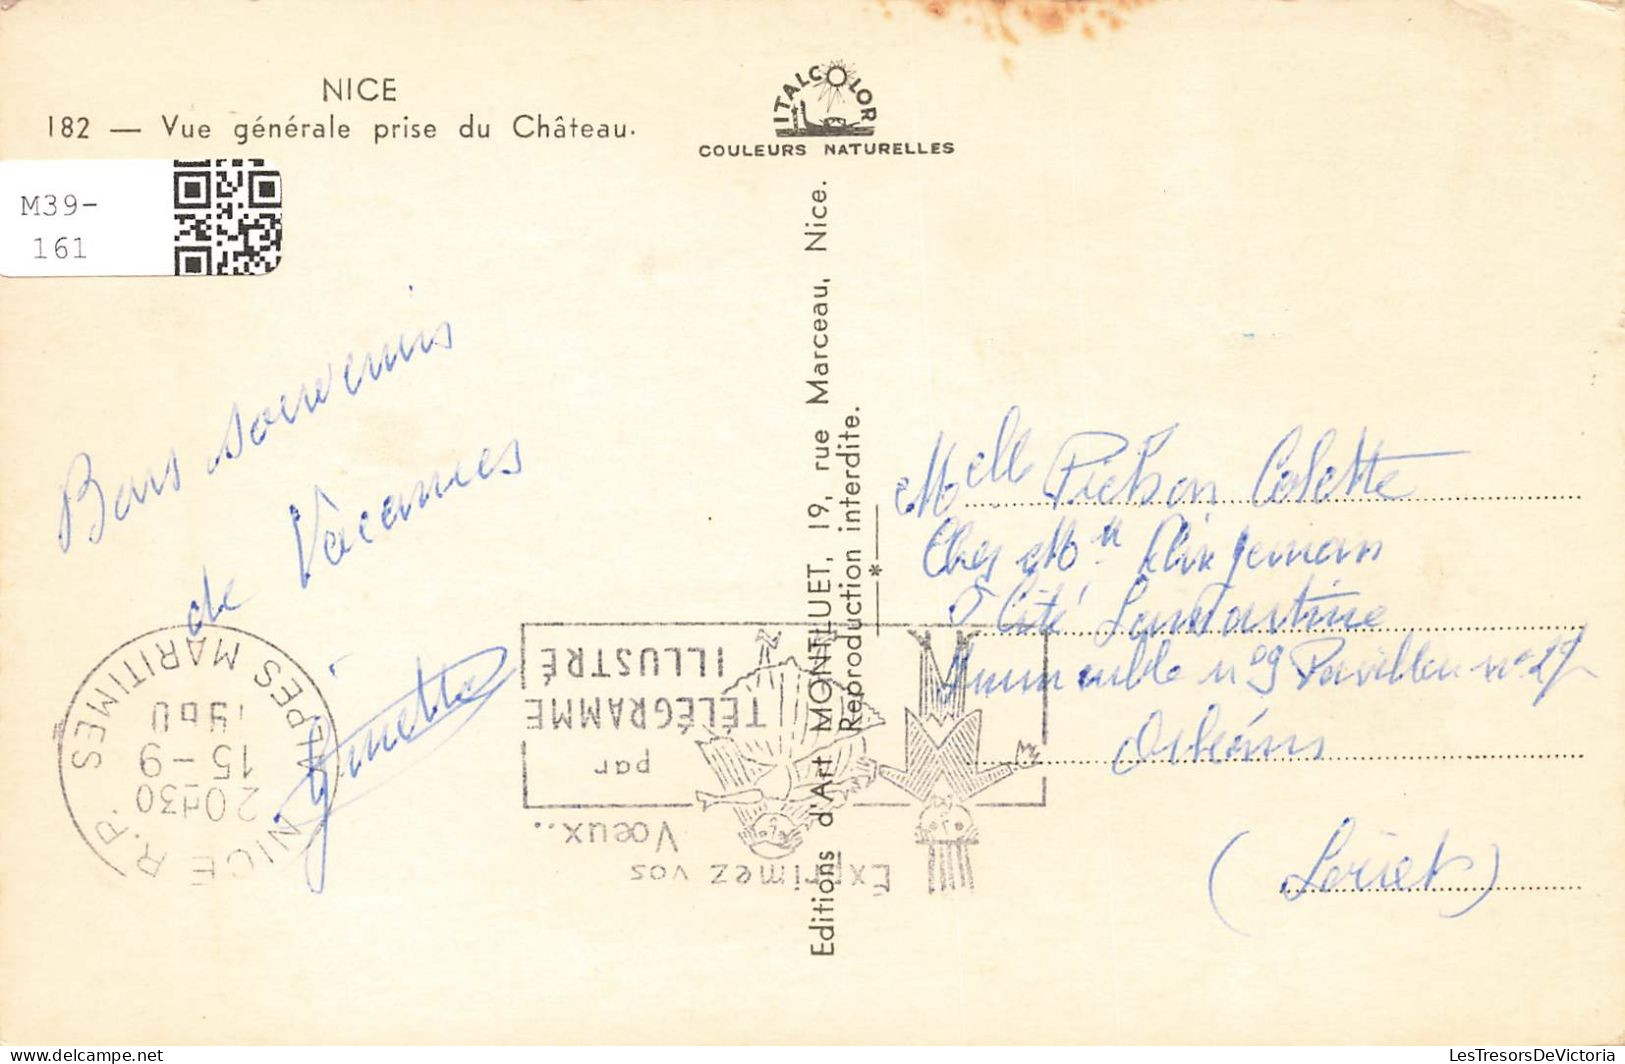 NICE
182 — Vue générale prise du Château.
ITALCOLOR
COULEURS NATURELLES
M39-
161
Bons souvenirs
de Vacances
Ginette
Editions d'Art MONTLUET, 19, rue Marceau, Nice.
Reproduction interdite.
*
Melle Pichon Colette
Chez Mr
Cité Lamartine
Immeuble n°9 Pavillon n° 27
Orléans
(Loiret)
NICE R.P.
ALPES MARITIMES
20H30
15-9
Exprimez vos
Vœux..
par
TÉLÉGRAMME
ILLUSTRÉ
LesTresorsDeVictoria
delcampe.net